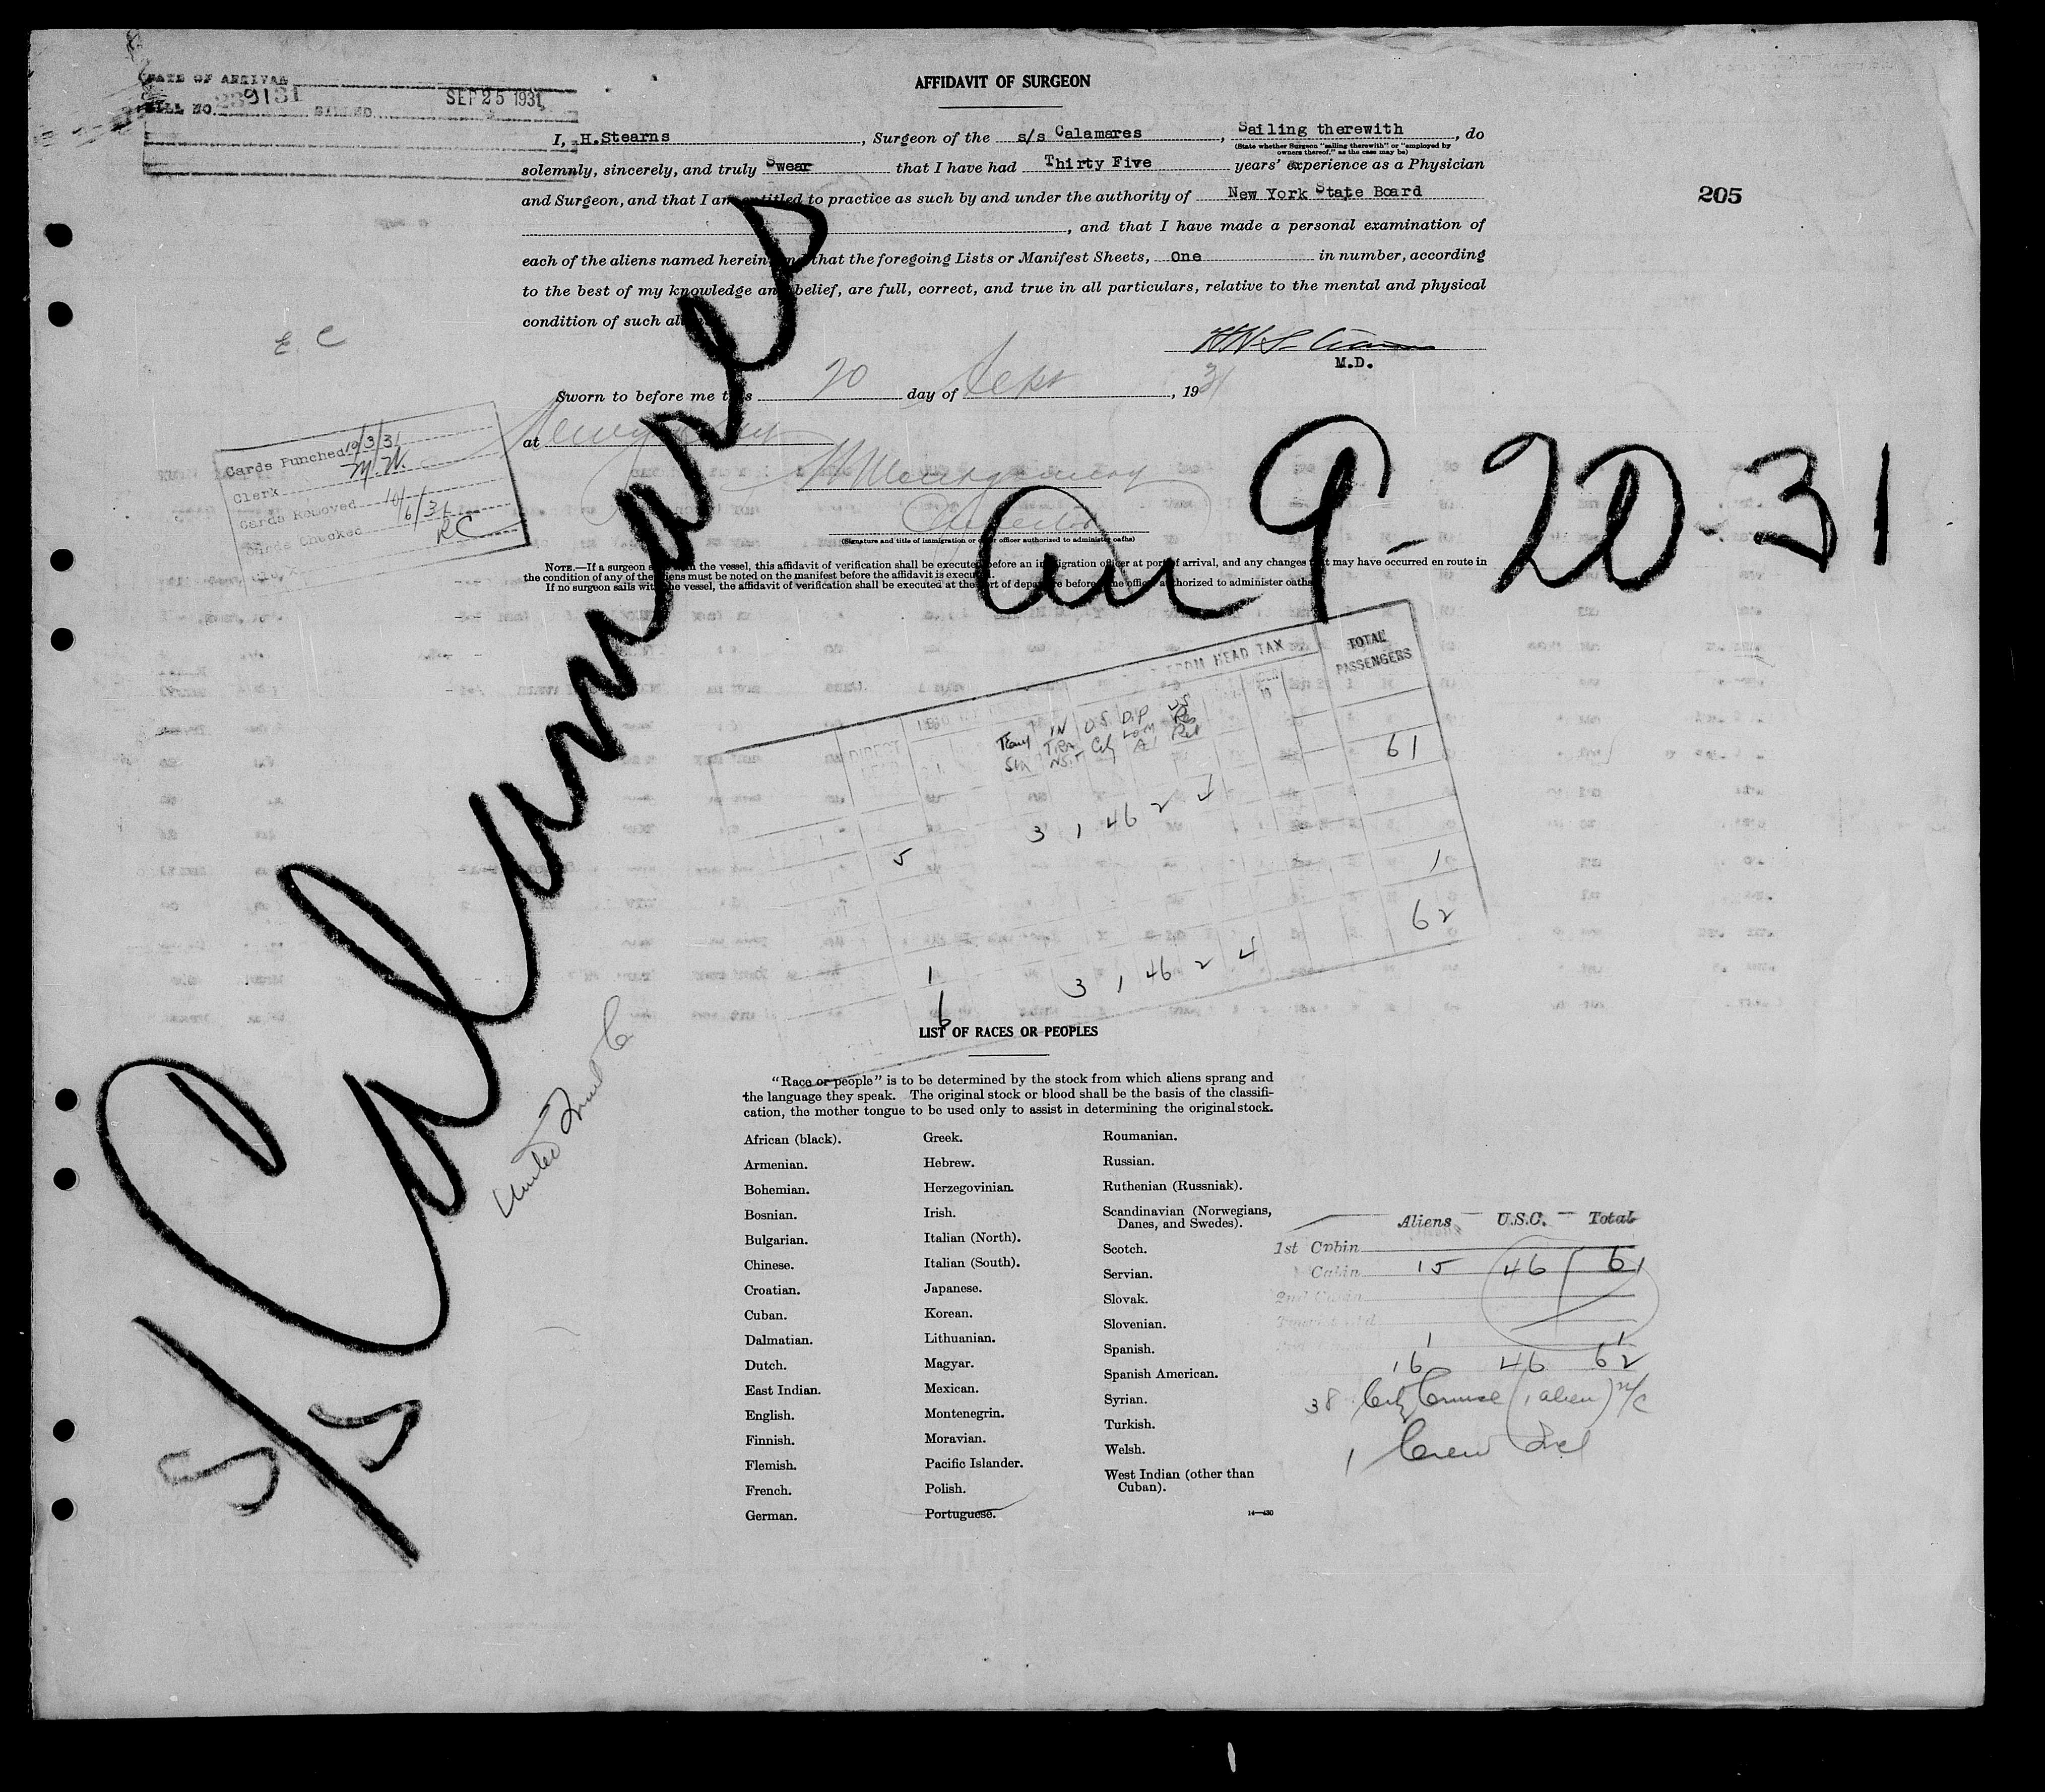 DATE OF ARRIVAL
BILL NO. 239131 BILLED SEP 25 1931
AFFIDAVIT OF SURGEON
I, H.Stearns, Surgeon of the s/s Calamares, Sailing therewith, do
(State whether Surgeon "sailing therewith" or "employed by
owners thereof," as the case may be)
solemnly, sincerely, and truly Swear that I have had Thirty Five years' experience as a Physician
and Surgeon, and that I am entitled to practice as such by and under the authority of New York State Board
205
, and that I have made a personal examination of
each of the aliens named herein, and that the foregoing Lists or Manifest Sheets, One in number, according
to the best of my knowledge and belief, are full, correct, and true in all particulars, relative to the mental and physical
condition of such aliens.
E C
M.D.
Sworn to before me this 20 day of Sept, 1931
at
Cards Punched 10/3/31
Clerk M.W.
Cards Removed 10/6/31
Cards Checked RC
(Signature and title of immigration or other officer authorized to administer oaths)
NOTE.—If a surgeon sails with the vessel, this affidavit of verification shall be executed before an immigration officer at port of arrival, and any changes that may have occurred en route in
the condition of any of the aliens must be noted on the manifest before the affidavit is executed.
If no surgeon sails with the vessel, the affidavit of verification shall be executed at the port of departure before the officer authorized to administer oaths.
S/S Calamares
Arr 9-20-31
FROM HEAD TAX TOTAL PASSENGERS
DIRECT
IN TRANSIT U.S. Cit DIPLOMA
61
5 3 1 46 2 4
1
62
1
6 3 1 46 2 4
United Fruit Co
LIST OF RACES OR PEOPLES
"Race or people" is to be determined by the stock from which aliens sprang and
the language they speak. The original stock or blood shall be the basis of the classifi-
cation, the mother tongue to be used only to assist in determining the original stock.
African (black).
Armenian.
Bohemian.
Bosnian.
Bulgarian.
Chinese.
Croatian.
Cuban.
Dalmatian.
Dutch.
East Indian.
English.
Finnish.
Flemish.
French.
German.
Greek.
Hebrew.
Herzegovinian.
Irish.
Italian (North).
Italian (South).
Japanese.
Korean.
Lithuanian.
Magyar.
Mexican.
Montenegrin.
Moravian.
Pacific Islander.
Polish.
Portuguese.
Roumanian.
Russian.
Ruthenian (Russniak).
Scandinavian (Norwegians,
Danes, and Swedes).
Scotch.
Servian.
Slovak.
Slovenian.
Spanish.
Spanish American.
Syrian.
Turkish.
Welsh.
West Indian (other than
Cuban).
14—430
Aliens U.S.C. Total
1st Cabin
Cabin 15 46 61
2nd Cabin
1 1
16 46 62
38 City Cruise (1 alien)
1 Crew